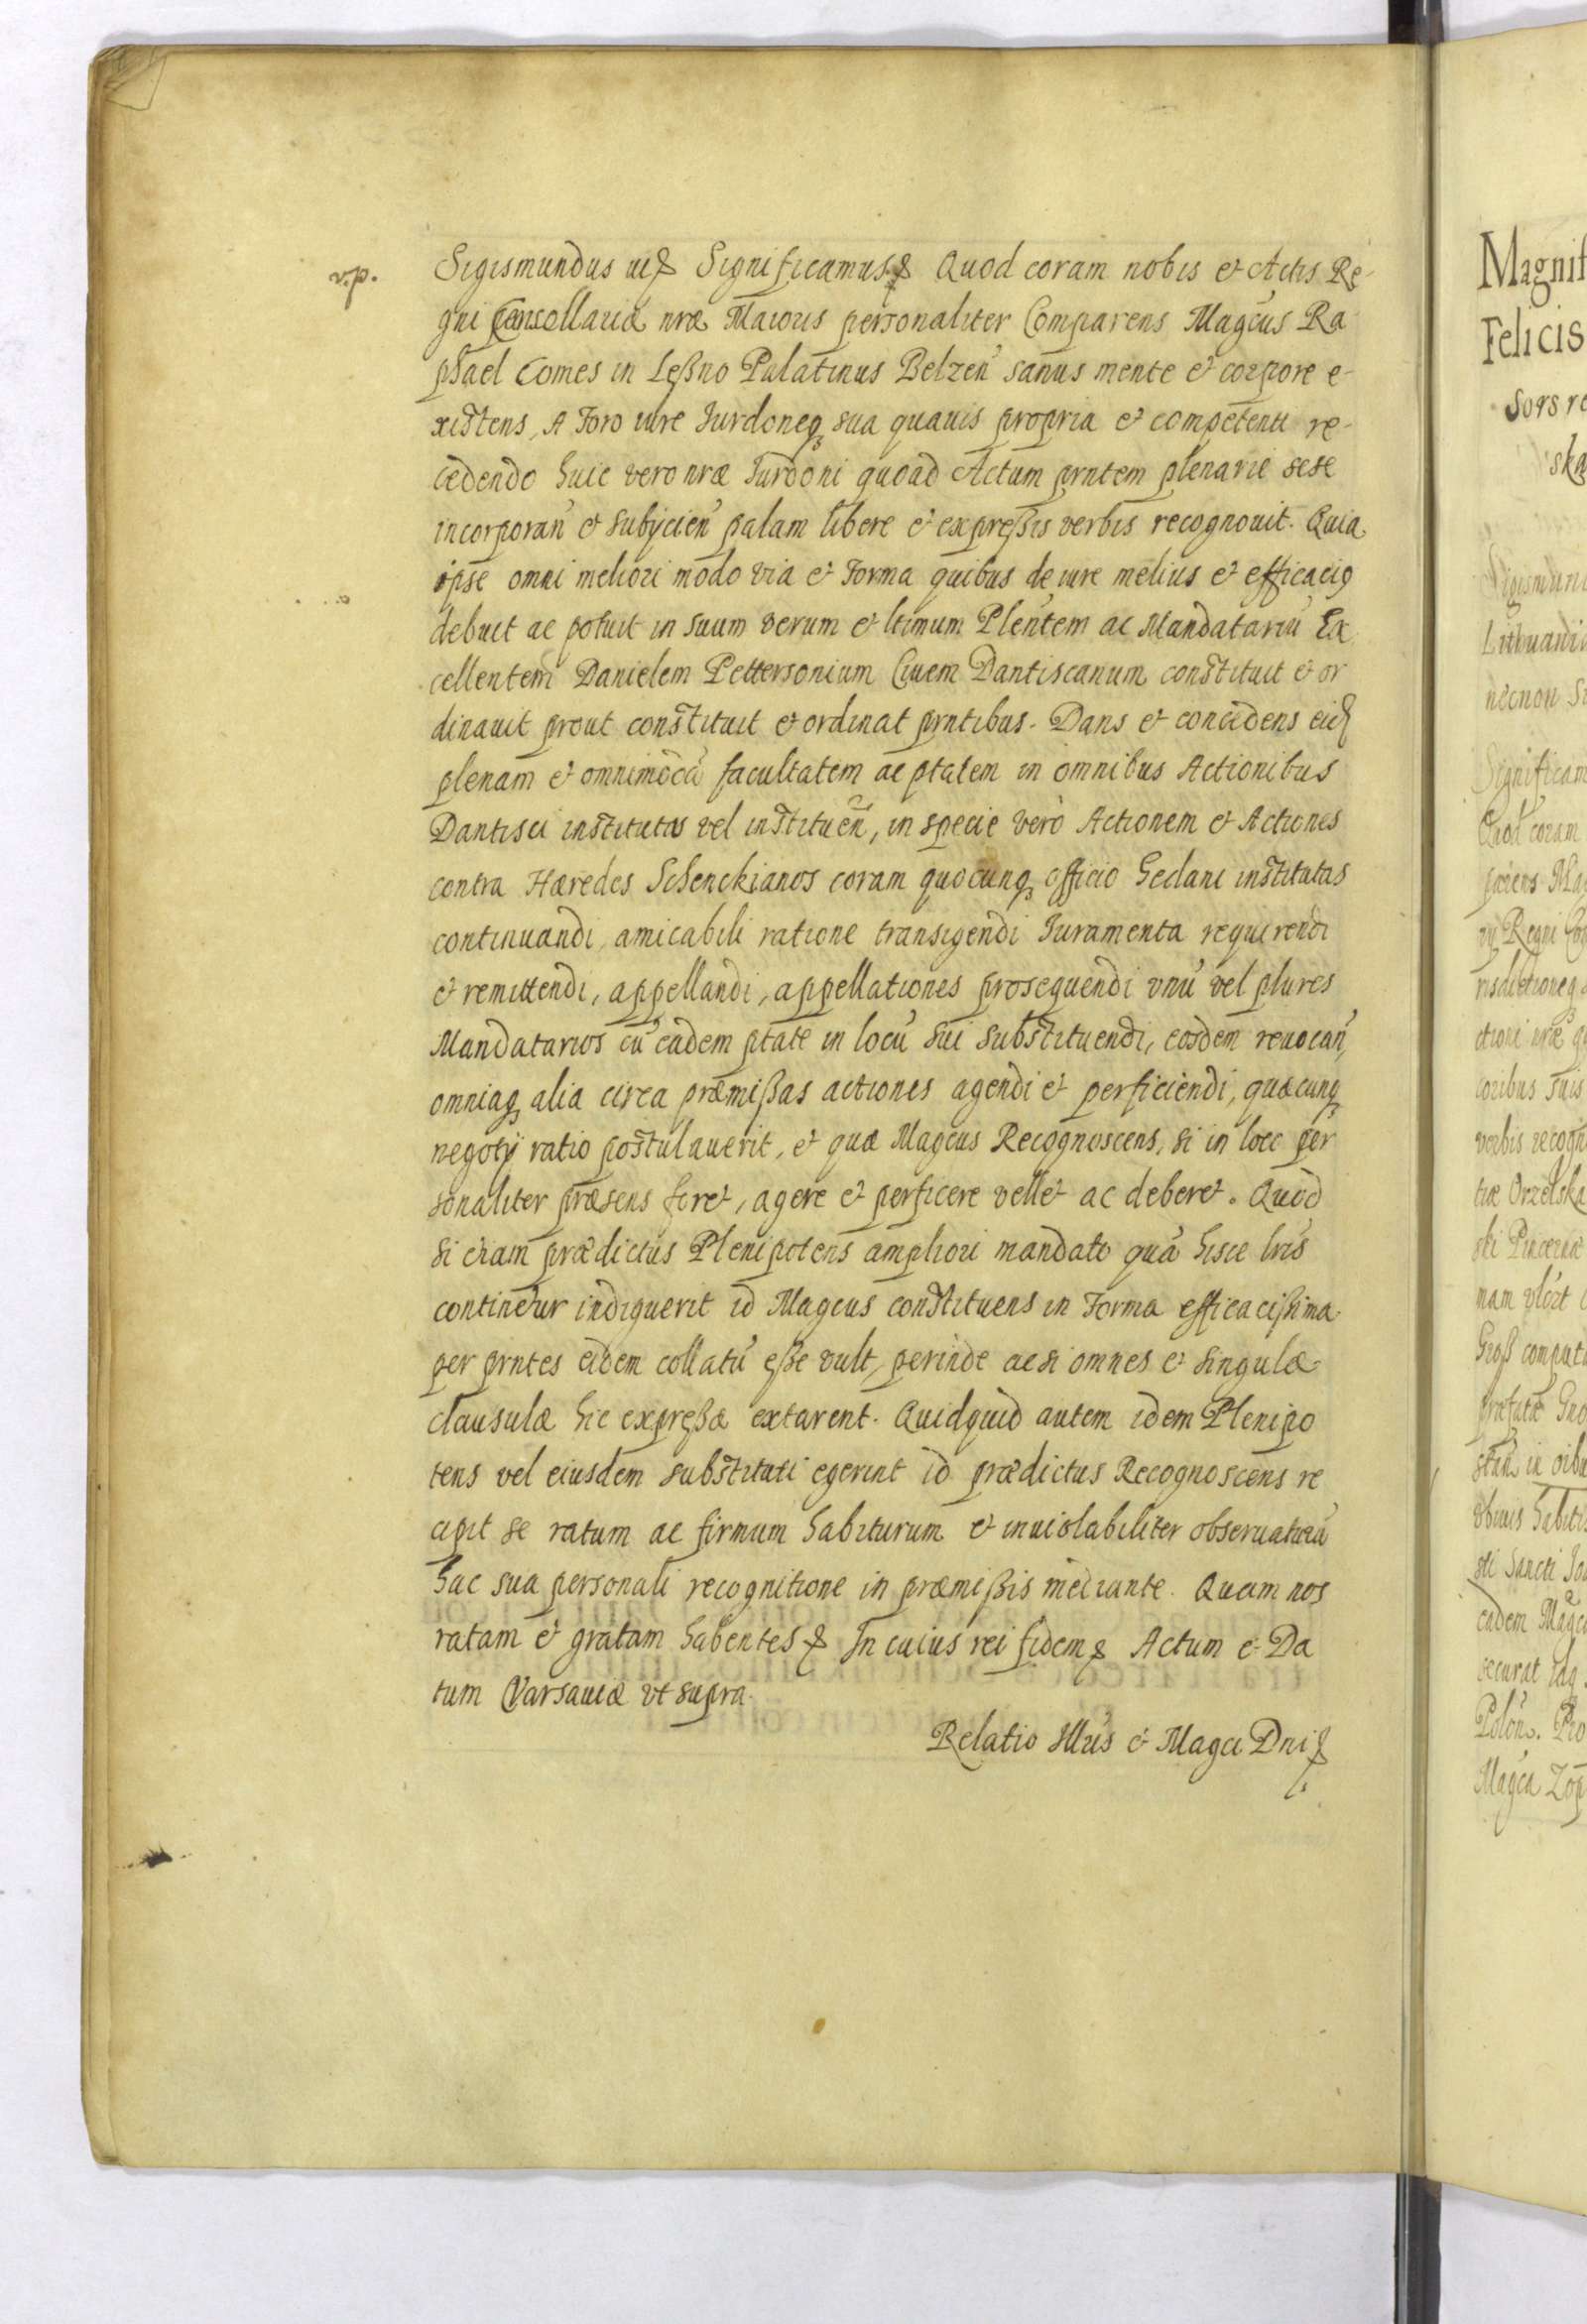 v.p.
Sigismundus etc Significamus etc Quod coram nobis et Actis Re-
gni Cancellariæ nræ Maioris personaliter Comparens Magcus Ra
phael Comes in Leßno Palatinus Belzen sanus mente et corpore e-
xistens, A Foro iure Iurdoneq sua quauis propria et competenti re-
cedendo huic vero nræ Iurdoni quoad Actum prntem plenarie sese
incorporan et subÿcien palam libere et expreßis verbis recognouit. Quia
ipse omni meliori modo via et Forma quibus de iure melius et efficaciq
debuit ac potuit in suum verum et ltimum Plentem ac Mandatariu Ex
cellentem Danielem Pettersonium Ciuem Dantiscanum constituit et or
dinauit prout constituit et ordinat prntibus. Dans et concedens eid
plenam et omnimoda facultatem ac ptatem in omnibus Actionibus
Dantisci institutis vel instituen, in specie verò Actionem et Actiones
contra Hæredes Schenckianos coram quocunq officio Gedani institutas
continuandi, amicabili ratione transigendi Iuramenta requirendi
et remittendi, appellandi, appellationes prosequendi vnu vel plures
Mandatarios cu eadem ptate in locu sui substituendi, eosdem reuocan,
omniaq alia circa præmißas actiones agendi et perficiendi, quæcunq
negotÿ ratio postulauerit, et quæ Magcus Recognoscens, si in loco per
sonaliter præsens foret, agere et perficere vellet ac deberet. Quod
si etiam prædictus Plenipotens ampliori mandato qua hisce lris
continetur indiguerit id Magcus constituens in Forma efficacißima
per prntes eidem collatu eße vult, perinde ac si omnes et singulæ
clausulæ hic expreßæ extarent. Quidquid autem idem Plenipo
tens vel eiusdem substituti egerint id prædictus Recognoscens re
cipit se ratum ac firmum habiturum et inuiolabiliter obseruaturu
hac sua personali recognitione in præmißis mediante. Quam nos
ratam et gratam habentes etc In cuius rei fidem etc Actum et Da
tum Varsauiæ vt supra.
Relatio Illris et Magci Dni etc
Magnif
Felicis
sors re
ska
Sigismun
Lithuani
necnon
Significam
Quod coram
parens Ma
Regni
risdictioneq
ctioni nræ
coribus suis
verbis recogn
tiæ Orzelska
ski Pincernæ
nam
Groß computa
præfatæ Gno
habitis
sti Sancti Io
eadem Magca
securat idq
Polon.
Magca